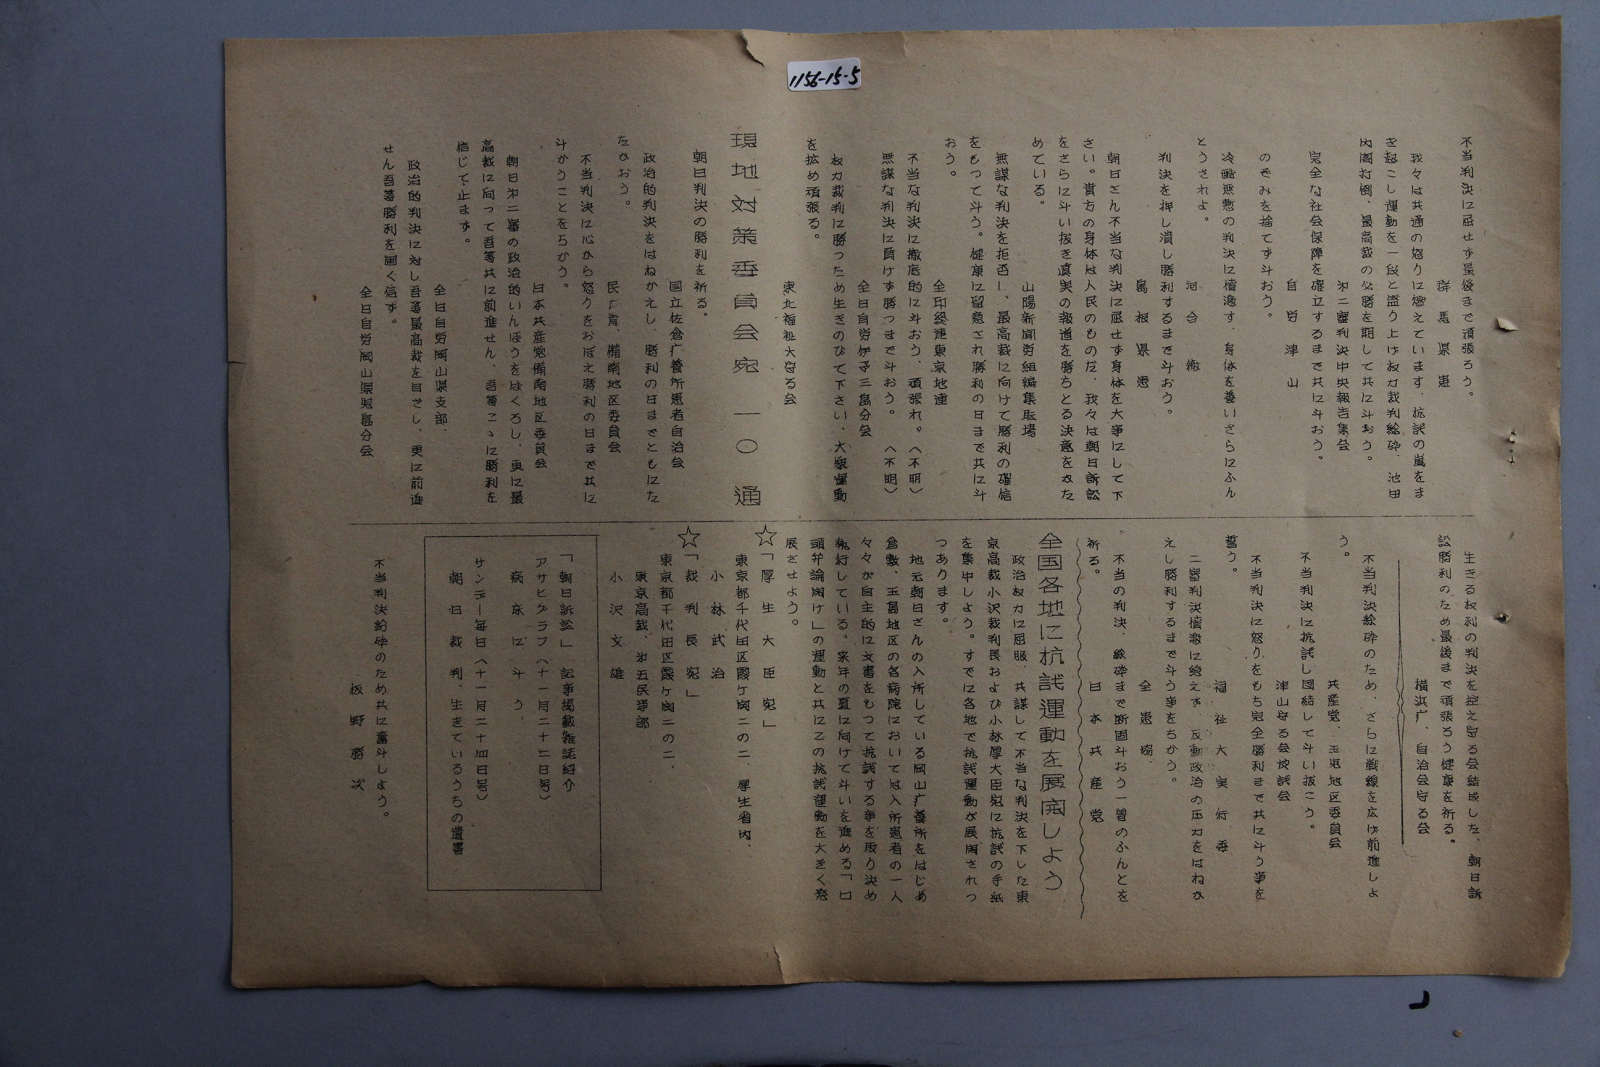 1156-15-5
不当判決に屈せず最後まで頑張ろう。
群馬県患
我々は共通の怒りに燃えています、抗議の嵐をま
き起こし運動を一段と盛り上げ权力裁判粉砕、池田
内閣打倒、最高裁の公勝を期して共に斗おう。
オ二審判決中央報告集会
完全な社会保障を確立するまで共に斗おう。
自労津山
のぞみを捨てず斗おう。
冷酷無惨の判決に憤激す、身体を養いさらにふん
とうされよ。
河合衛
判決を押し潰し勝利するまで斗おう。
島根県患
朝日さん不当な判決に屈せず身体を大事にして下
さい。貴方の身体は人民のものだ、我々は朝日訴訟
をさらに斗い抜き真実の報道を勝ちとる決意をかた
めている。
山陽新聞労組編集職場
無謀な判決を拒否し、最高裁に向けて勝利の確信
をもって斗う。健康に留意され勝利の日まで共に斗
おう。
全印総連東京地連
不当な判決に徹底的に斗おう、頑張れ。（不明）
無謀な判決に負けず勝つまで斗おう。（不明）
全日自労
三島分会
权力裁判に勝つため生きのびて下さい、大衆運動
を拡め頑張る。
東北福祉大守る会
現地対策委員会宛一〇通
朝日判決の勝利を祈る。
国立佐倉广養所患者自治会
政治的判決をはねかえし、勝利の日までともにた
たかおう。
備南地区委員会
不当判決に心から怒りをおぼえ勝利の日まで共に
斗かうことをちかう。
日本共産党備南地区委員会
朝日オ二審の政治的いんぼうをばくろし、更に最
高裁に向って吾等共に前進せん、吾等こゝに勝利を
信じて止ます。
全日自労岡山県支部、
政治的判決に対し吾等最高裁を目ざし、更に前進
せん吾等勝利を固く信ず。
全日自労岡山県
分会
生きる权利の判決を控え守る会結成した、朝日訴
訟勝利のため最後まで頑張ろう健康を祈る。
横浜广、自治会守る会
不当判決粉砕のため、さらに戦線を広げ前進しよ
う。
共産党、玉
地区委員会
不当判決に抗議し団結して斗い抜こう。
津山守る会
不当判決に怒りをもち完全勝利まで共に斗う事を
誓う。
福祉大実行委
二審判決憤激に絶えず、反動政治の圧力をはねか
えし勝利するまで斗う事をちかう。
全患
不当の判決、粉砕まで断固斗おう一層のふんとを
祈る。
日本共産党
全国各地に抗議運動を展開しよう
政治权力に屈服、共謀して不当な判決を下した東
京高裁小沢裁判長および小林厚大臣宛に抗議の手紙
を集中しよう。すでに各地で抗議運動が展開されつ
つあります。
地元朝日さんの入所している岡山广養所をはじめ
倉敷、玉島地区の各病院においては入所患者の一人
々々が自主的に文書をもって抗議する事を取り決め
執行している。来年の夏に向けて斗いを進める「口
頭弁論開け」の運動と共にこの抗議運動を大きく発
展させよう。
☆「厚生大臣宛」
東京都千代田区霞ケ関二の二、厚生省内、
小林武治
☆「裁判長宛」
東京都千代田区霞ケ関二の二、
東京高裁、オ五民事部
小沢文雄
「朝日訴訟」記事掲載雑誌紹介
アサヒグラフ（十一月二十二日号）
病床に斗う、
サンデー毎日（十一月二十四日号）
朝日裁判、生きているうちの遺書
不当判決粉砕のため共に奮斗しよう。
板野勝次